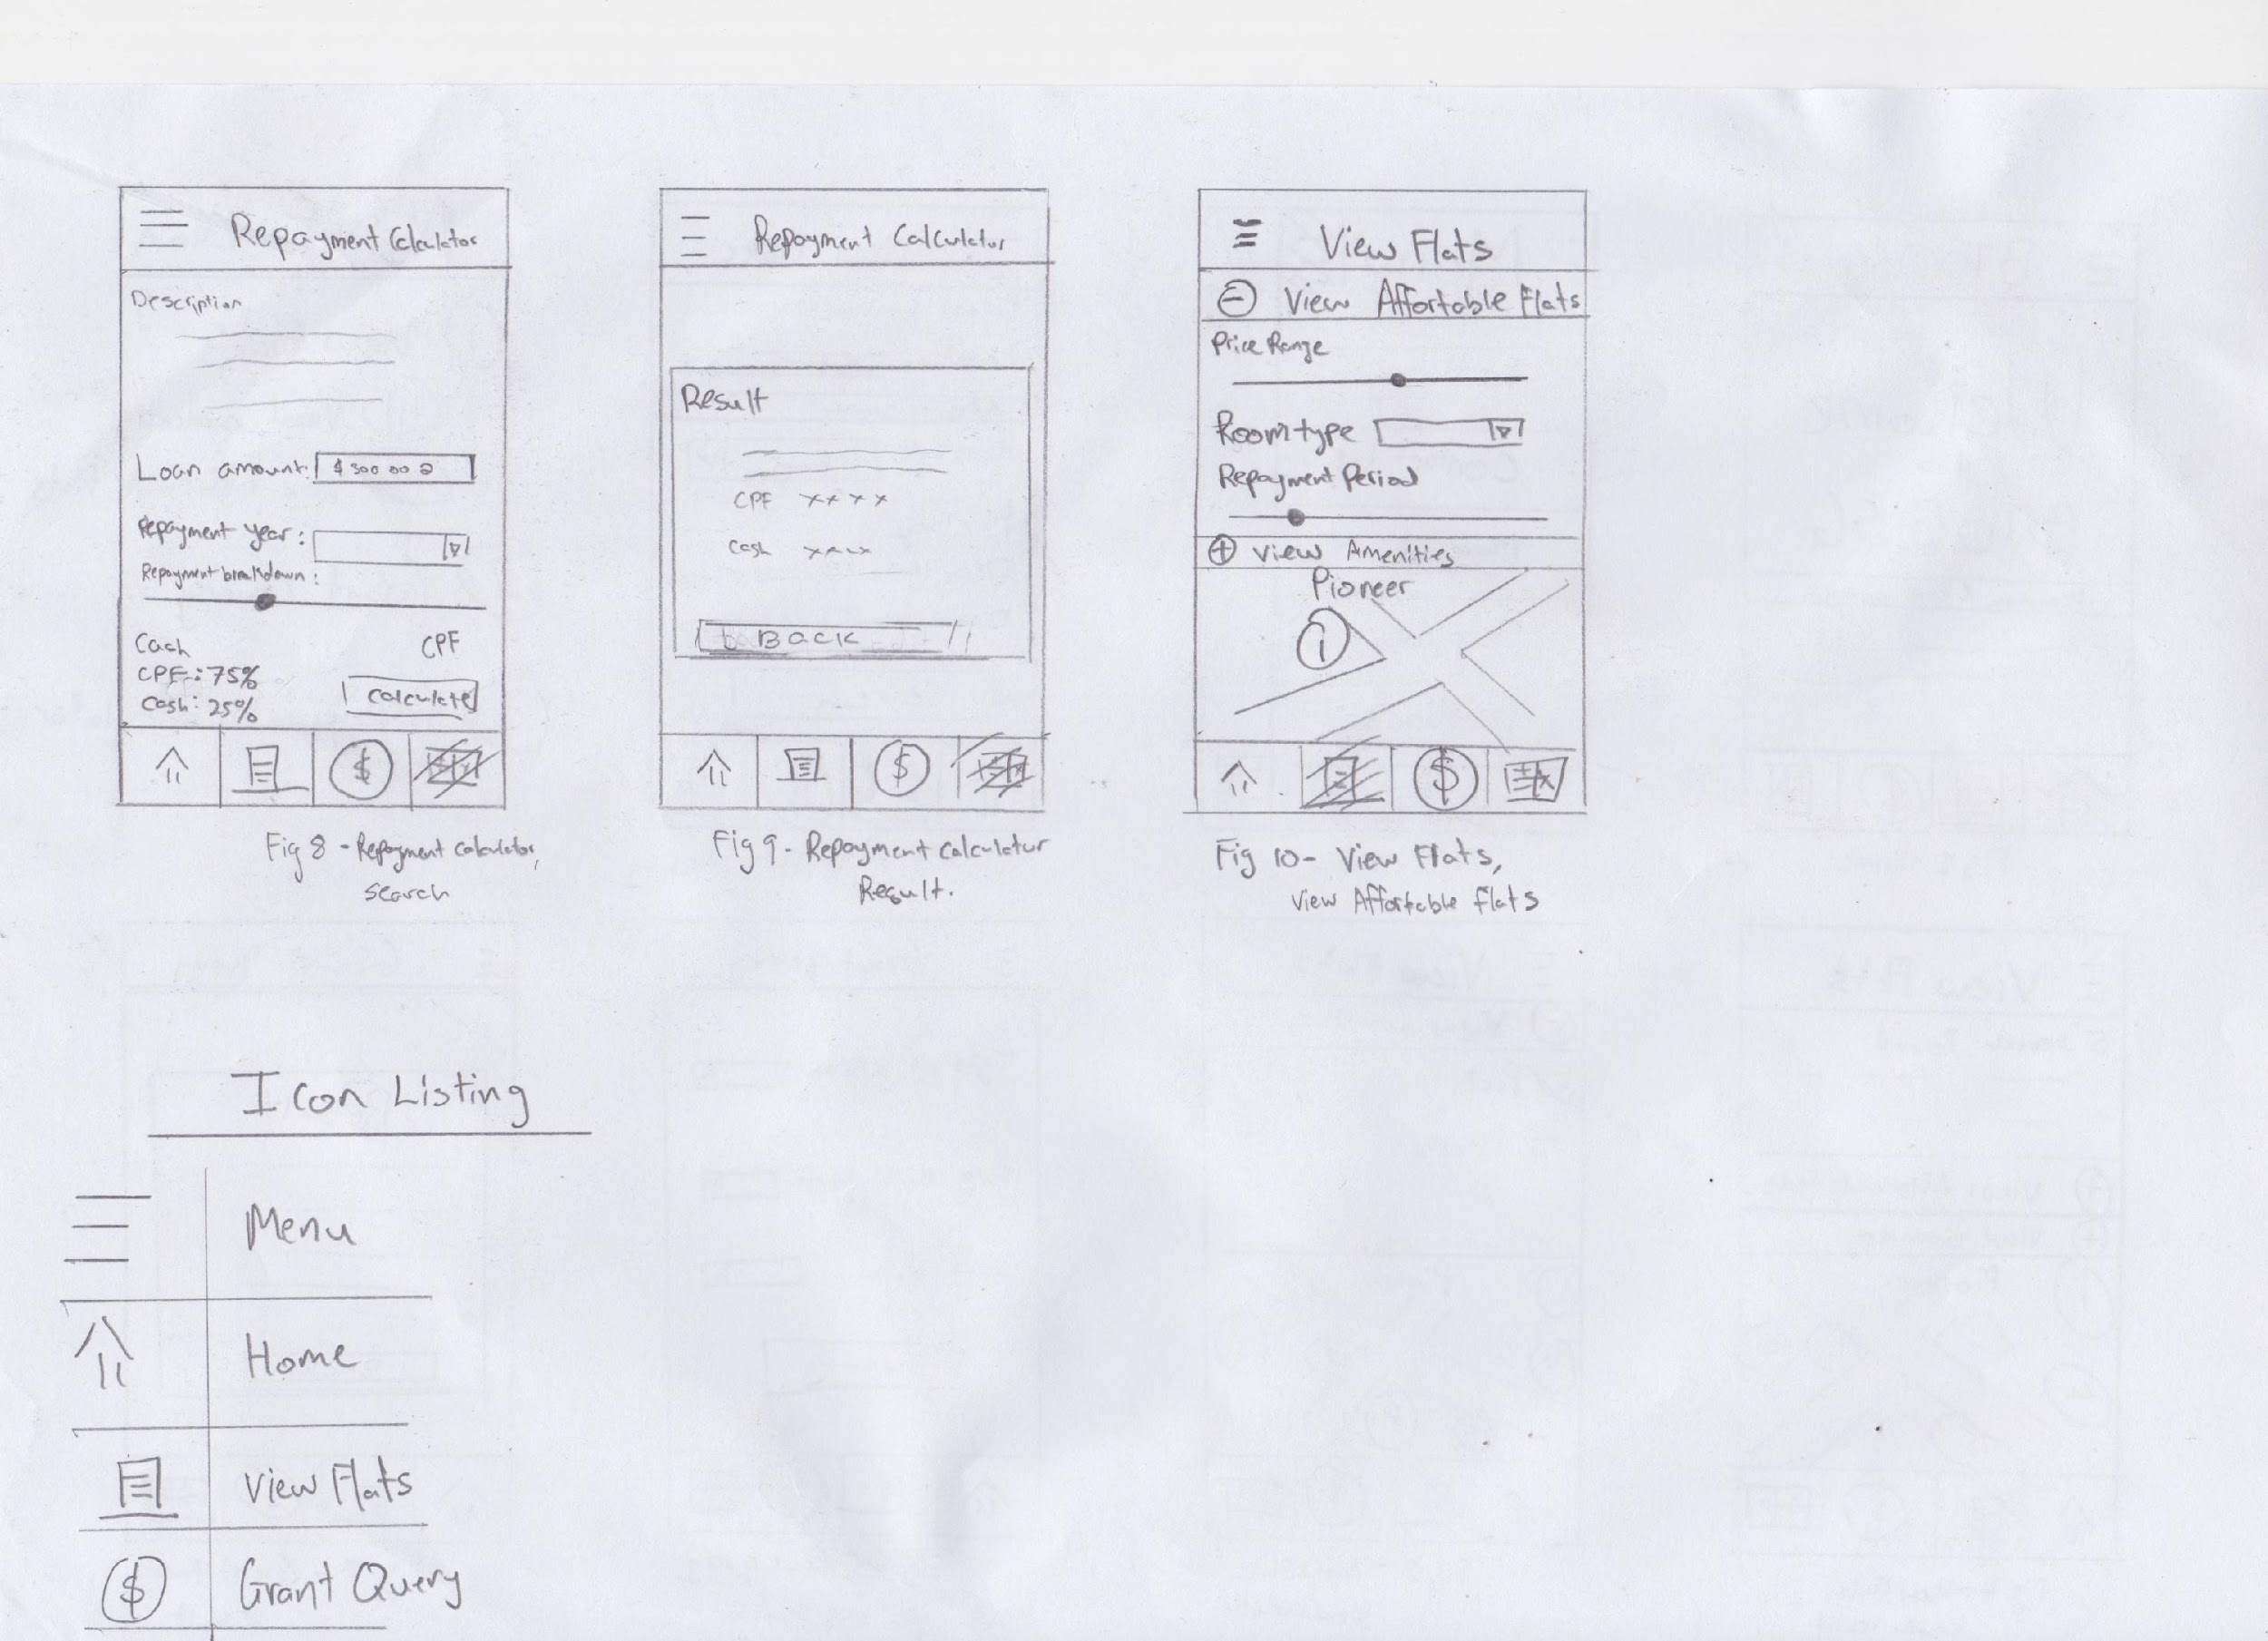 Repayment Calculator
Description
Loan amount: $300 000
Repayment year:
Repayment breakdown:
Cash CPF
CPF: 75%
Cash: 25%
Calculate
$
Fig 8 - Repayment calculator,
search
Repayment Calculator
Result
CPF xxxx
Cash xxxx
BACK
$
Fig 9 - Repayment Calculator
Result.
View Flats
View Affortable Flats
Price Range
Room type
Repayment Period
View Amenities
Pioneer
1
$
Fig 10 - View Flats,
View Affortable flats
Icon Listing
Menu
Home
View Flats
$ Grant Query